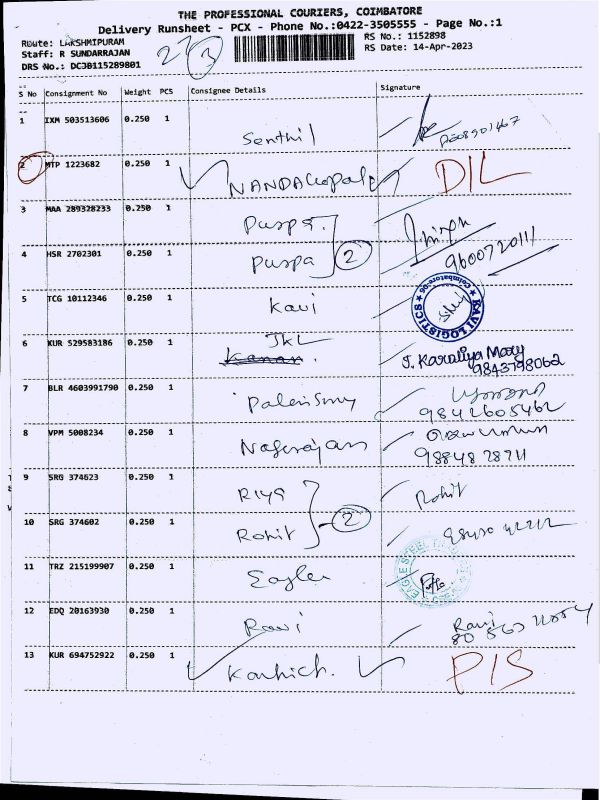 THE PROFESSIONAL COURIERS, COIMBATORE
Delivery Runsheet - PCX - Phone No.:0422-3505555 - Page No.:1
Route: LAKSHMIPURAM
Staff: R SUNDARRAJAN
DRS No.: DCJB115289801
RS No.: 1152898
RS Date: 14-Apr-2023
S No Consignment No Weight PCS Consignee Details Signature
1 IXM 503513606 0.250 1 Senthil
2 MTP 1223682 0.250 1 NANDAGopal DIL
3 MAA 289328233 0.250 1 Puspa
4 HSR 2702301 0.250 1 Puspa 2 9600720111
5 TCG 10112346 0.250 1 Kavi KAVI LOGISTICS
6 KUR 529583186 0.250 1 JKL Kanan. J. Karaliya Mary
9843798062
7 BLR 4603991790 0.250 1 9842605462
8 VPM 5008234 0.250 1 Nagarajan 9884828711
9 SRG 374623 0.250 1 Riya Rohit
10 SRG 374602 0.250 1 Rohit 2
11 TRZ 215199907 0.250 1 Eagle
12 EDQ 20163930 0.250 1 Ravi Ravi
13 KUR 694752922 0.250 1 P/S